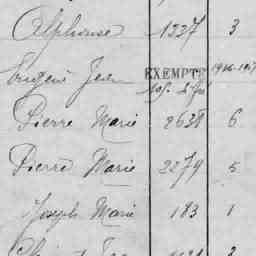 Alphonse 1327 3
Eugène Jean EXEMPTÉ 1916-1917
Pierre Marie 2638 6
Pierre Marie 2274 5
Joseph Marie 183 1